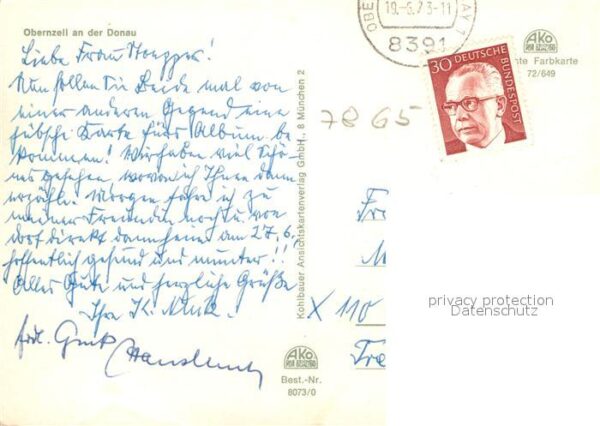 Obernzell an der Donau
Liebe Frau
Nun sollen Sie Beide mal von
einer anderen Gegend eine
hübsche Karte fürs Album be
kommen! Wir haben viel Schö-
nes gesehen wovon ich Ihnen dann
erzähle. Morgen fahre ich zu
meiner Freundin noch u. von
dort direkt dann heim am 27.6.
hoffentlich gesund und munter!!
Alles Gute und herzliche Grüße
Ihre K.
frdl. Gruß
Kohlbauer Ansichtskartenverlag GmbH., 8 München 2
AKO
Best.-Nr.
8073/0
19.-6.73-11
8391
30 DEUTSCHE BUNDESPOST
AKO
te Farbkarte
72/649
7865
Fr
M
X 110
Fre
privacy protection
Datenschutz